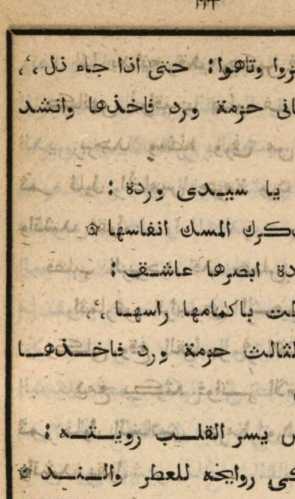 وتاهوا: حتى اذا جاء ذل
حزمة ورد فاخذها وانشد
يا سيدى وردة:
المسك انفاسها
ابصرها عاشق:
باكمامها راسها
الثالث حزمة ورد فاخذها
يسر القلب رويته:
روايحه للعطر والند